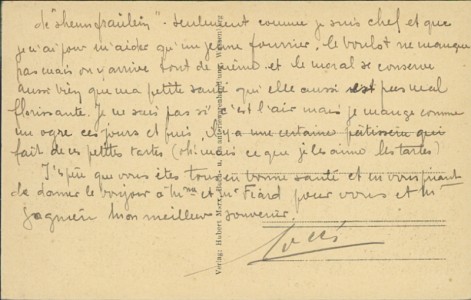 de "shennfraülein" - seulement comme je suis chef et que
je n'ai pour m'aider qu'un jeune fourrier, le boulot ne manque
pas mais on y arrive tout de même et le moral se conserve
aussi bien que ma petite santé qui elle aussi est pas mal
florissante. Je ne sais pas si c'est l'air mais je mange comme
un ogre ces jours et puis il y a une certaine pâtissière qui
fait de ces petites tartes (oh! mais ce que je les aime les tartes)
J'espère que vous êtes tous en bonne santé et en vous priant
de donner le bonjour à Mme et Mr Fiard pour vous et Mr
Gagnien mon meilleur souvenir.
Verlag: Hubert Marx,